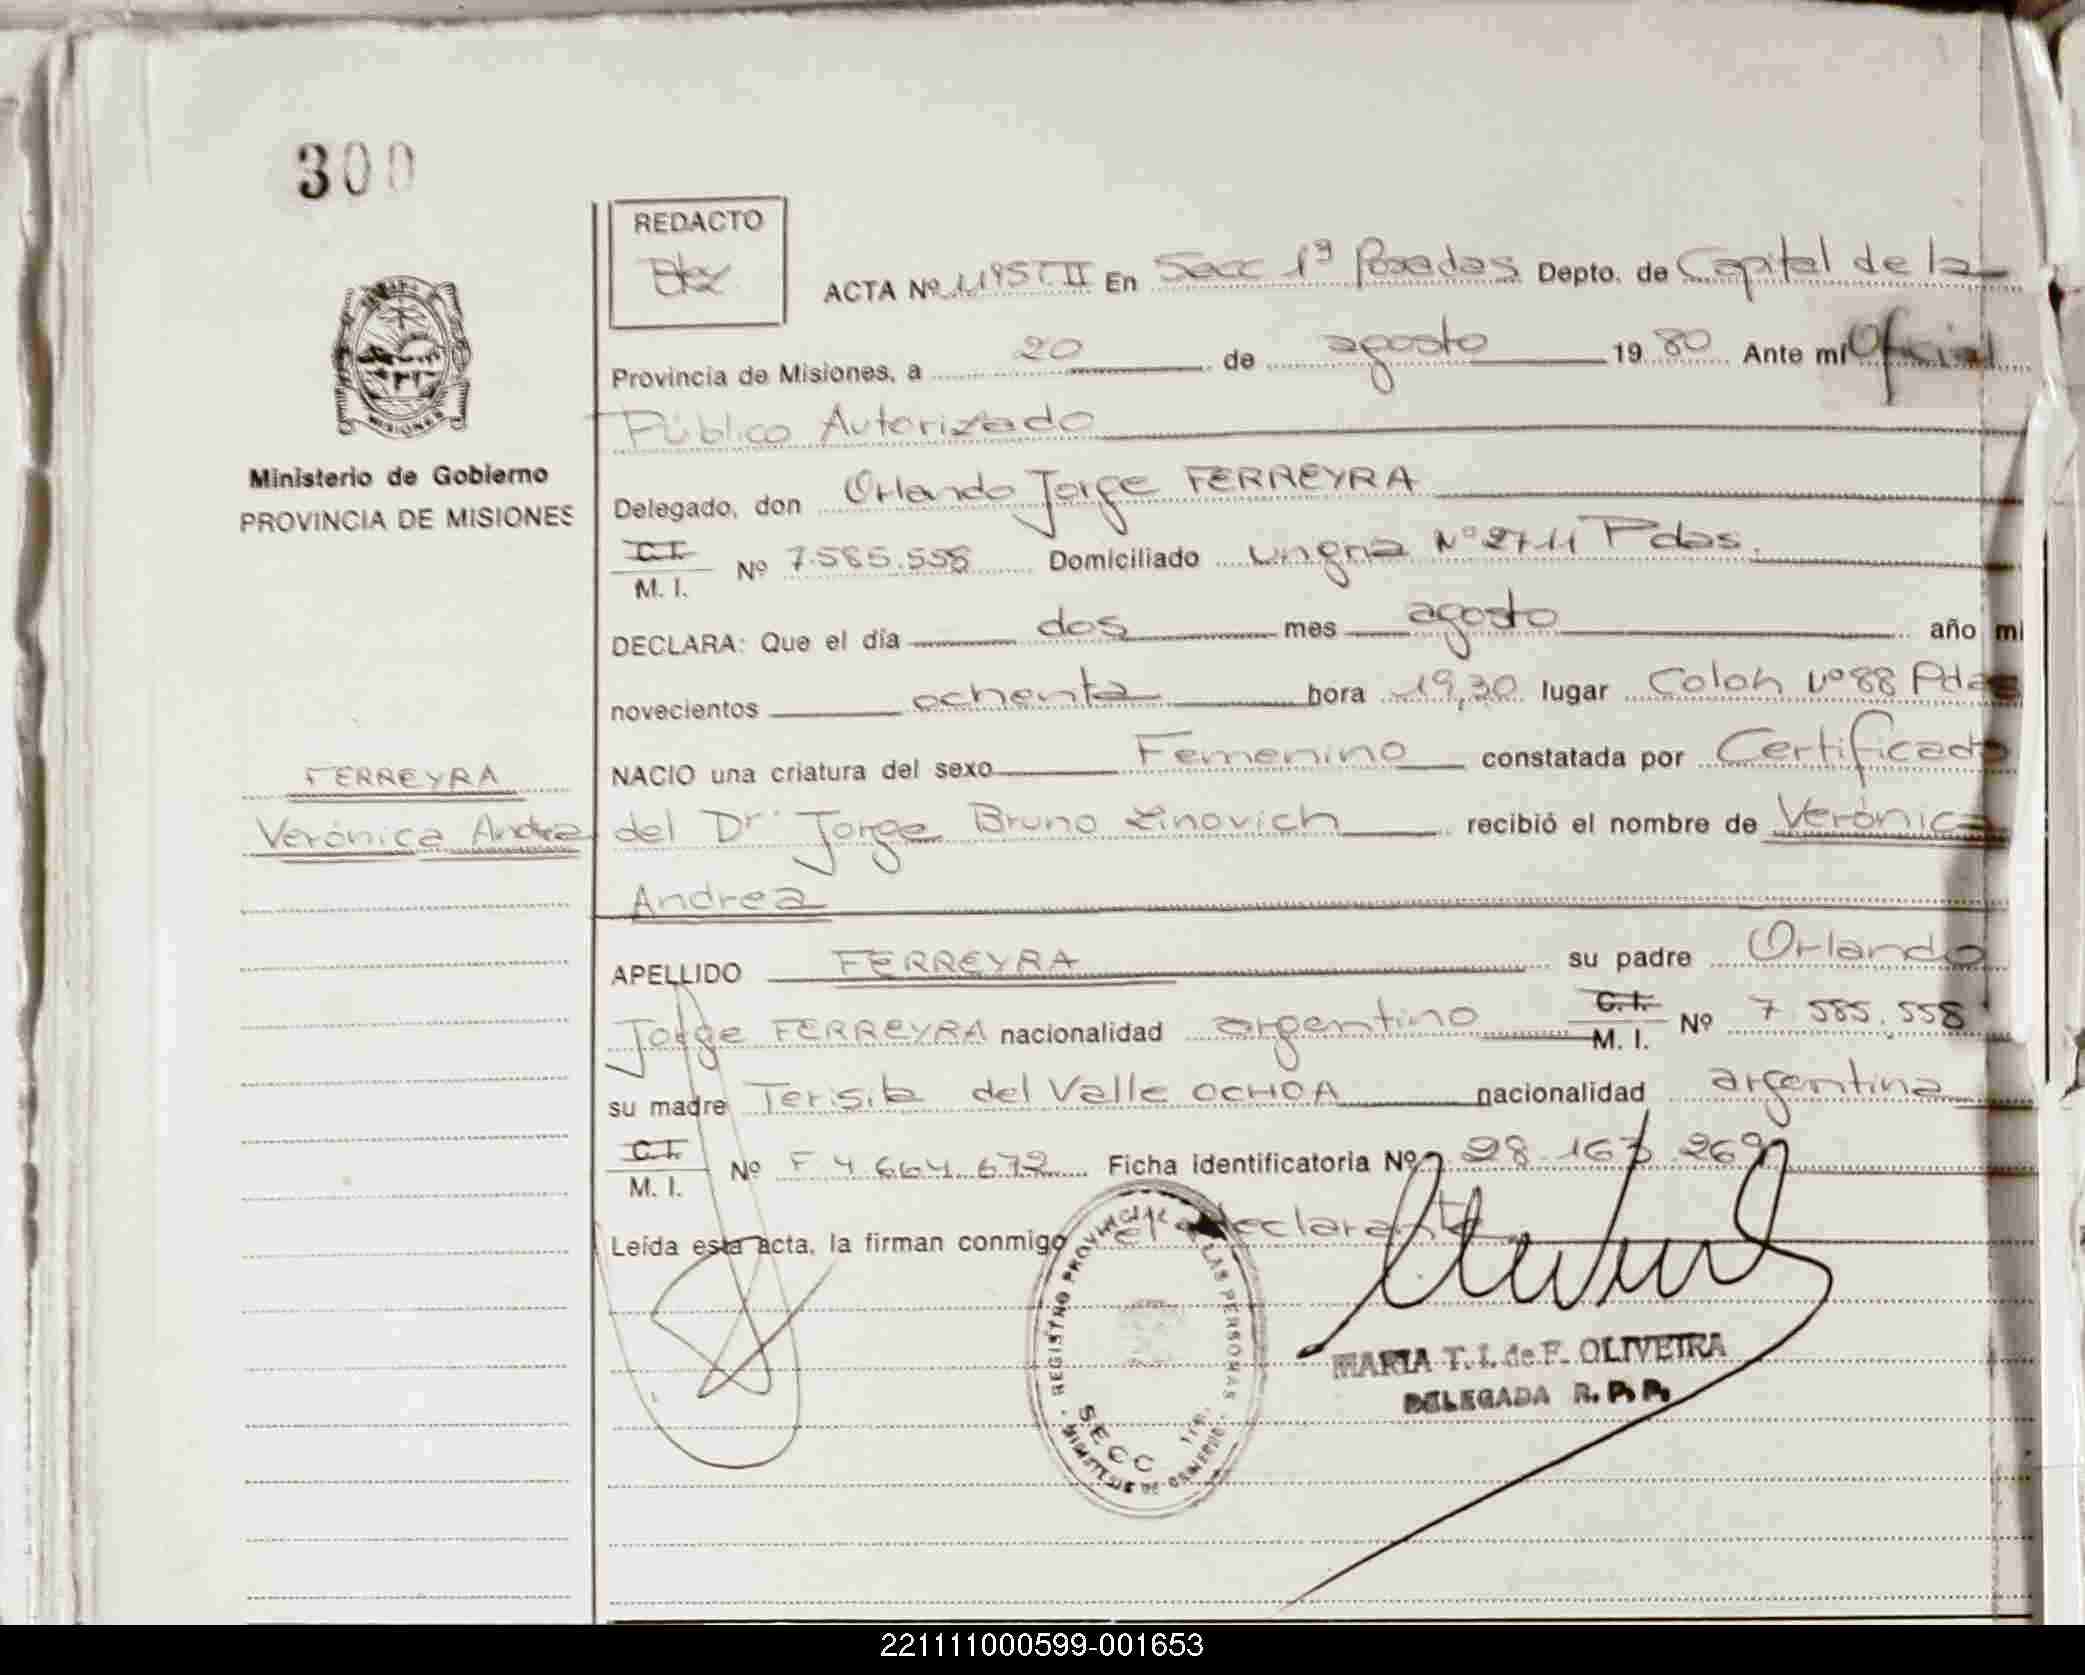 300
REDACTO
ACTA Nº 1195 T II En Secc 1ª Posadas Depto. de Capital de la
Provincia de Misiones, a 20 de agosto 19 80 Ante mí Oficial
Público Autorizado
Ministerio de Gobierno
PROVINCIA DE MISIONES
Delegado, don Orlando Jorge FERREYRA
C.I.
M. I. Nº 7.585.558 Domiciliado ungria Nº 2711 Pdas.
DECLARA: Que el día dos mes agosto año mi
novecientos ochenta hora 19,30 lugar Colon Nº 88 Pdas
NACIO una criatura del sexo Femenino constatada por Certificado
FERREYRA
Verónica Andrea
del Dr. Jorge Bruno Zinovich recibió el nombre de Verónica
Andrea
APELLIDO FERREYRA su padre Orlando
Jorge FERREYRA nacionalidad argentino C.I.
M. I. Nº 7.585.558
su madre Terisita del Valle OCHOA nacionalidad argentina
C.I.
M. I. Nº F 4.664.672 Ficha identificatoria Nº 28.167.269
Leída esta acta, la firman conmigo el declarante
REGISTRO PROVINCIAL LAS PERSONAS
SECC
MINISTERIO DE GOBIERNO
MARIA T. I. de F. OLIVEIRA
DELEGADA R. P. P.
221111000599-001653